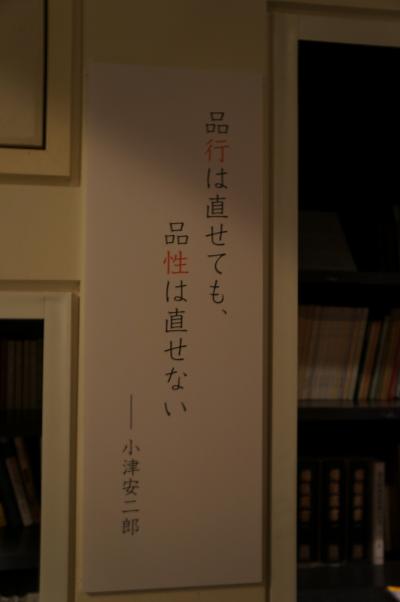 品行は直せても、
品性は直せない
——小津安二郎